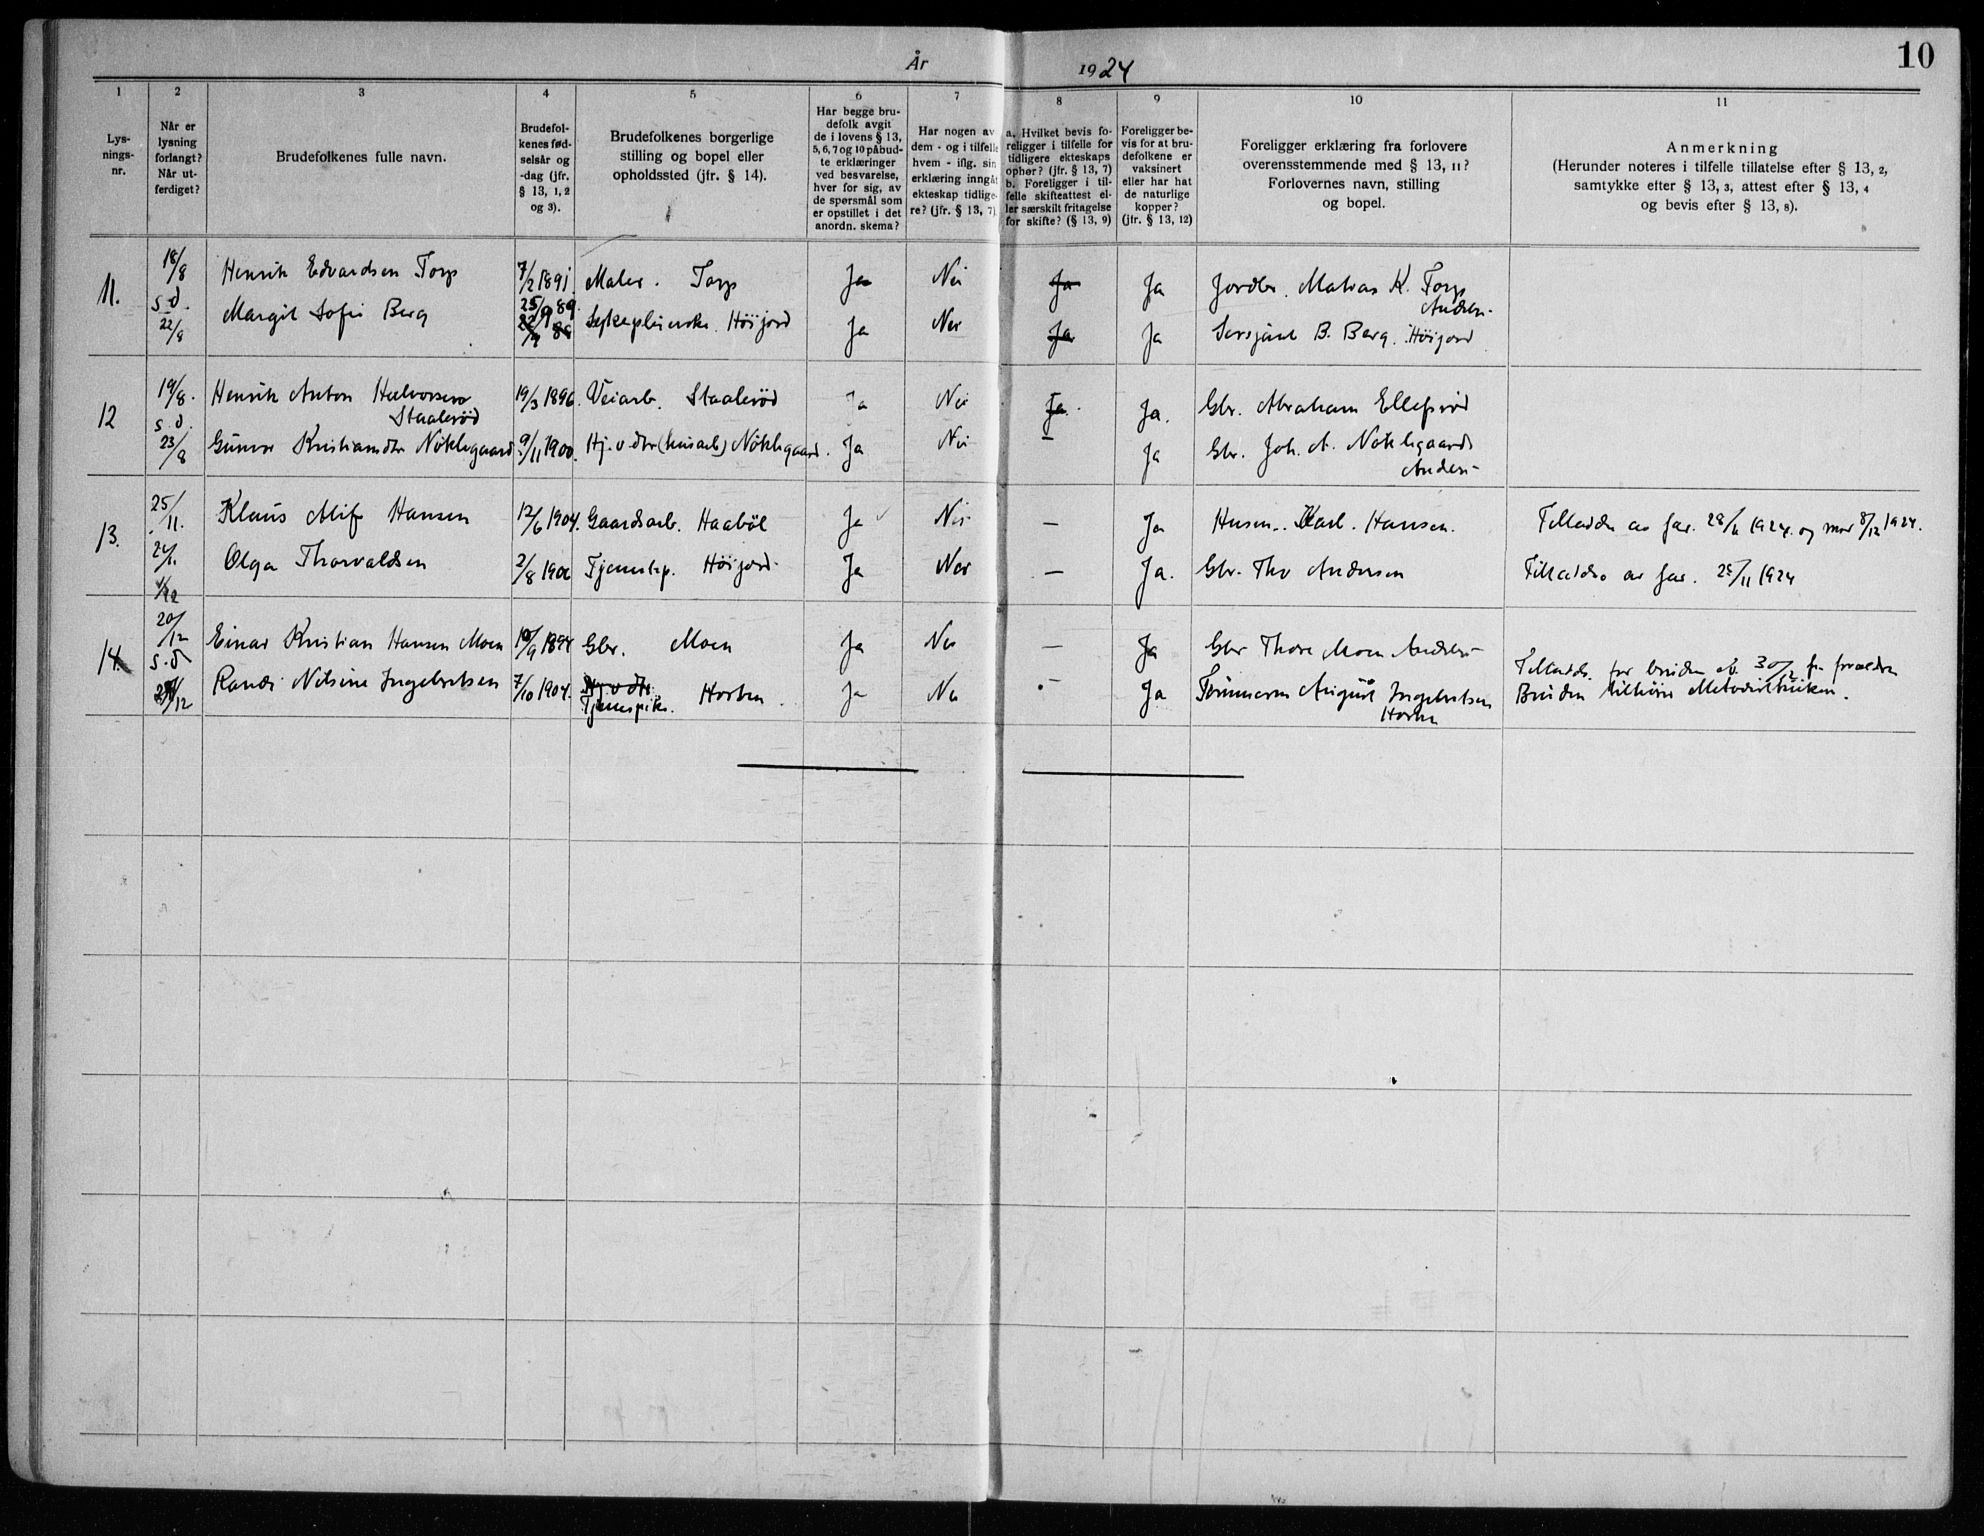 År 1924
10
1
2
3
4
5
6
7
8
9
10
11
Lys-
nings-
nr.
Når er
lysning
forlangt?
Når ut-
ferdiget?
Brudefolkenes fulle navn.
Brudefol-
kenes fød-
selsår og
-dag (jfr.
§ 13, 1, 2
og 3).
Brudefolkenes borgerlige
stilling og bopel eller
opholdssted (jfr. § 14).
Har begge bru-
defolk avgit
de i lovens § 13,
5, 6, 7 og 10 påbud-
te erklæringer
ved besvarelse,
hver for sig, av
de spørsmål som
er opstillet i det
anordn. skema?
Har nogen av
dem - og i tilfelle
hvem - iflg. sin
erklæring inngåt
ekteskap tidlige-
re? (jfr. § 13, 7)
a. Hvilket bevis fo-
religger i tilfelle for
tidligere ekteskaps
ophør? (jfr. § 13, 7)
b. Foreligger i til-
felle skifteattest el-
ler særskilt fritagelse
for skifte? (§ 13, 9)
Foreligger be-
vis for at bru-
defolkene er
vaksinert
eller har hat
de naturlige
kopper?
(jfr. § 13, 12)
Foreligger erklæring fra forlovere
overensstemmende med § 13, 11?
Forlovernes navn, stilling
og bopel.
Anmerkning
(Herunder noteres i tilfelle tillatelse efter § 13, 2,
samtykke efter § 13, 3, attest efter § 13, 4
og bevis efter § 13, 8).
11.
18/8
s.d.
22/8
Henrik Edvardsen Torp 7/2 1891 Maler. Torp Ja Nei Ja Ja Jordbr. Matias K. Torp
Andeb-
Margit Sofie Berg 25/9 89 22/9 88 Sykepleierske. Höijord Ja Nei Ja Ja Sersjant B. Berg. Höijord
12
19/8.
s.d.
23/8
Henrik Anton Halvorsen 19/3 1896. Veiarb. Staaleröd Ja Nei Ja. Ja. Gbr. Abraham Ellefsröd
Staaleröd
Gunvor Kristiansdtr Nöklegaard 9/11 1900. Hj.v.dtr (husarb) Nöklegaard. Ja Nei – Ja Gbr. Joh. A. Nöklegaard
Andeb-
13.
25/11.
4/12
Klaus Alif Hansen 12/6 1904. Gaardsarb. Haaböl Ja Nei – Ja Husm. Karl. Hansen. Tilladelse av far. 28/11 1924. og mor 8/12 1924.
Olga Thorvaldsen 2/8 1906 Tjenestep. Höijord. Ja Nei – Ja. Gbr. Tho Andersen Tilladelse av far. 25/11 1924
14.
20/12
s.d
Einar Kristian Hansen Moen 10/9 1894 Gbr. Moen Ja Nei – Ja Gbr Thore Moen Andeb-
Randi Nilsine Ingebretsen 7/10 1904. Hj.v.dtr. Horten Ja Nei – Ja Tömmerm August Ingebretsen
Tjenespike.
Horten
Tilladels. for bruden av 30/12 fr. forældre
Bruden tilhörer Metodistkirken.